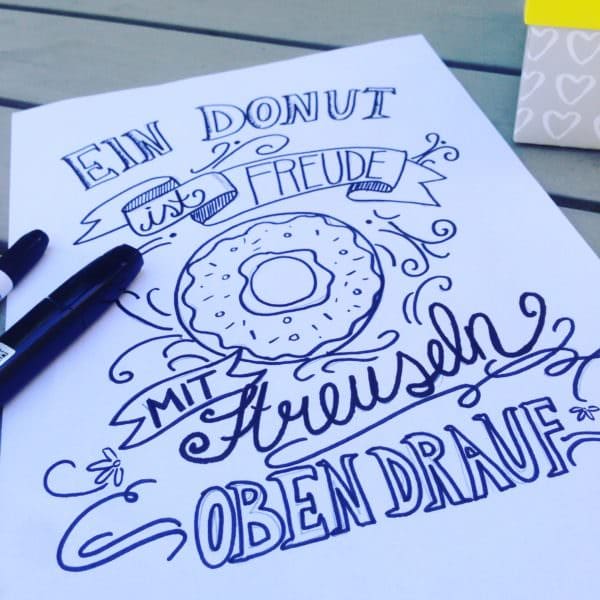 EIN DONUT
ist FREUDE
MIT Streuseln
OBEN DRAUF